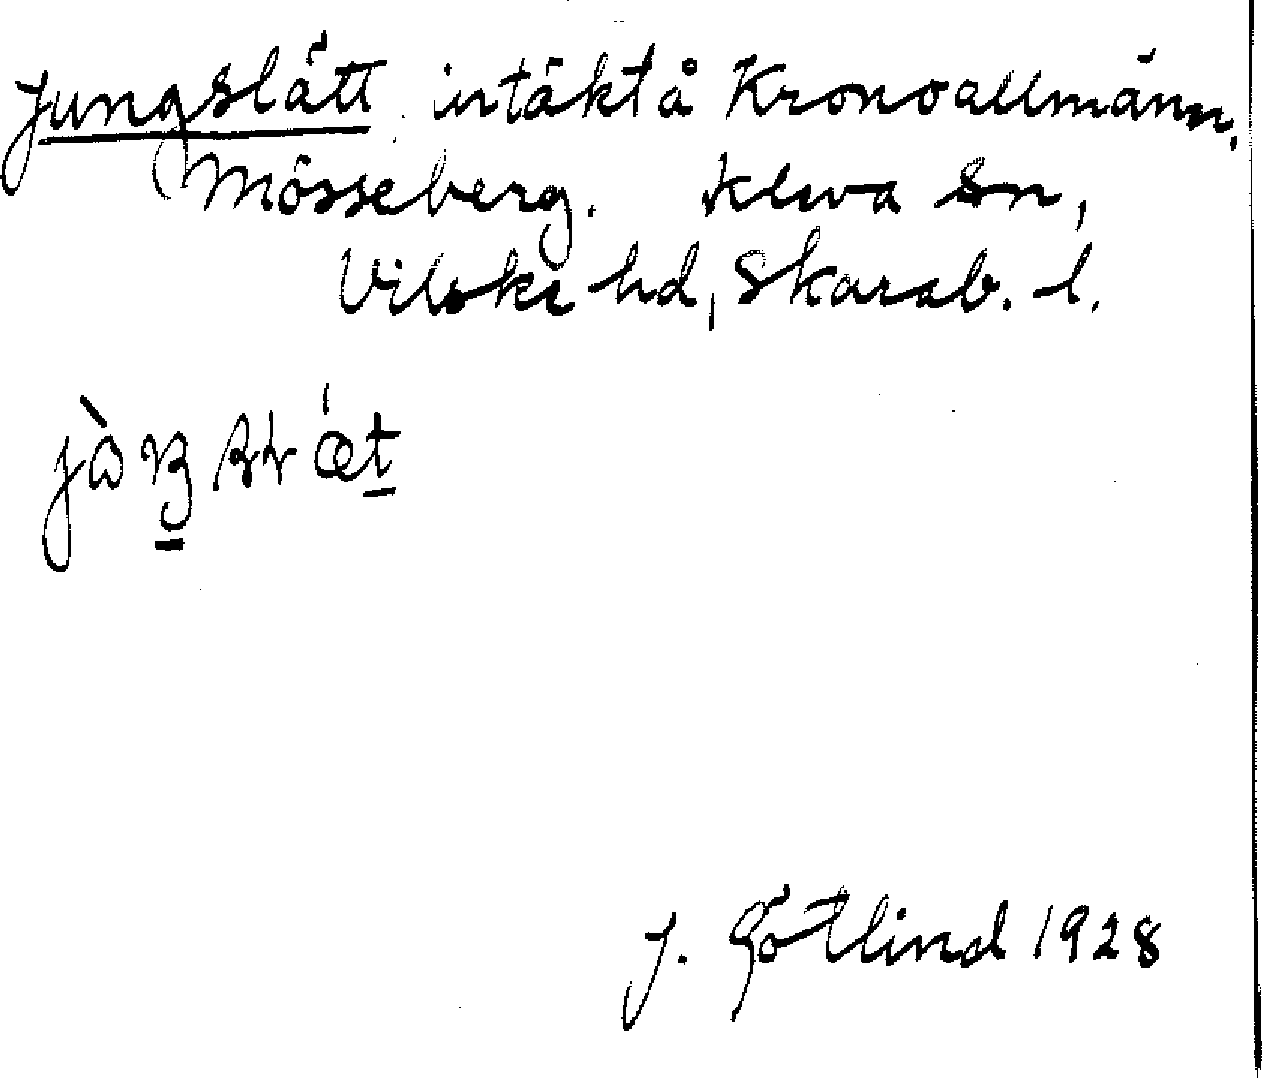 Jungslätt intäkt å Kronoallmänn.
Mösseberg. Kleva sn,
Vilske hd, Skarab. l.
J. Götlind 1928